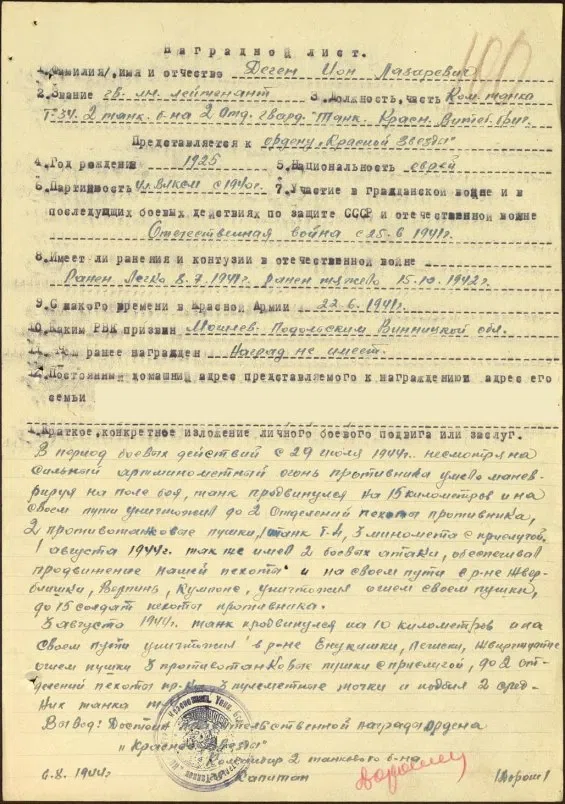 100
Наградной лист.
1. Фамилия, имя и отчество Деген Ион Лазаревич
2. Звание гв. мл. лейтенант 3. Должность, часть Ком. танка
Т-34. 2 танк. б-на 2 Отд. гвард. Танк. Красн. Витеб. бриг.
Представляется к ордену "Красной Звезды"
4. Год рождения 1925 5. Национальность еврей
6. Партийность чл. ВЛКСМ с 1940г. 7. Участие в гражданской войне и в
последующих боевых действиях по защите СССР и отечественной войне
Отечественная война с 25.6 1941г.
8. Имеет ли ранения и контузии в отечественной войне
Ранен легко 8.7.1941г. ранен тяжело 15.10.1942г.
9. С какого времени в Красной Армии 22.6.1941г.
10. Каким РВК призван Могилев-Подольским Винницкой обл.
11. Чем ранее награжден Наград не имеет.
12. Постоянный домашний адрес представляемого к награждению адрес его
семьи
1. Краткое, конкретное изложение личного боевого подвига или заслуг.
В период боевых действий с 29 июля 1944г. несмотря на
сильный артминометный огонь противника умело маневрируя
на поле боя, танк продвинулся на 15 километров и на
своем пути уничтожил до 2 отделений пехоты противника,
2 противотанковые пушки, 1 танк Т-4, 3 миномета с прислугой.
1 августа 1944г. так же имел 2 боевых атаки, обеспечивал
продвижение нашей пехоты и на своем пути в р-не
уничтожил огнем своей пушки,
до 15 солдат пехоты противника.
3 августа 1944г. танк продвинулся на 10 километров и на
своем пути уничтожил в р-не
огнем пушки 3 противотанковые пушки с прислугой, до 2 от-
делений пехоты пр-ка 3 пулеметные точки и подбил 2 сред-
них танка
Вывод: Достоин правительственной награды ордена
"Красной Звезды"
Командир 2 танкового б-на
6.8.1944г. Капитан /Дорош/